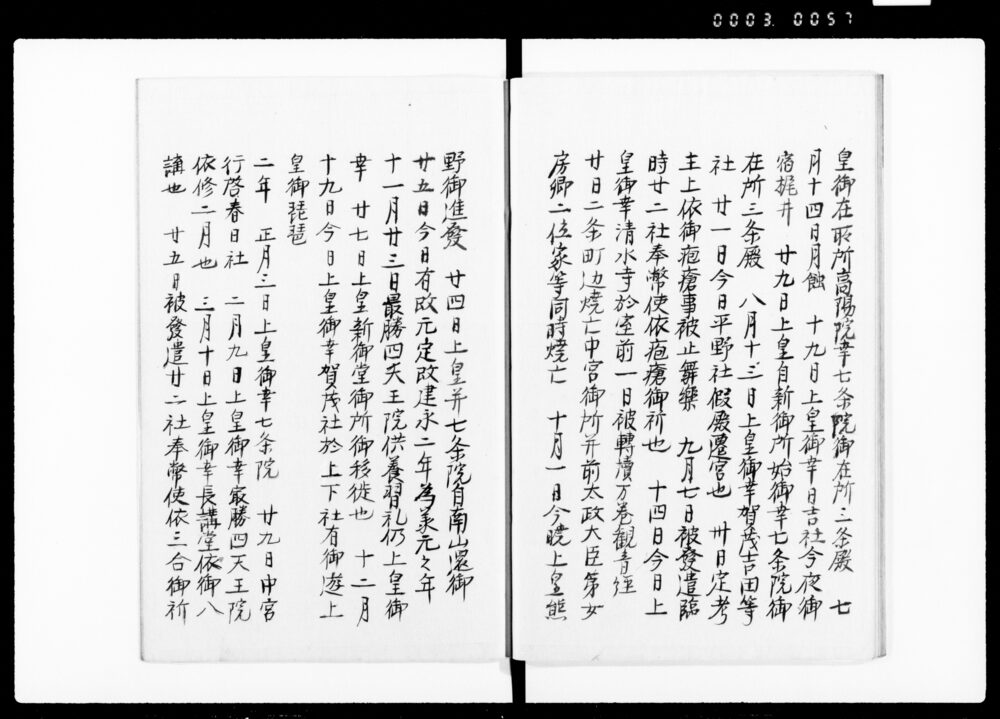 0003 0057
皇御在所高陽院幸七条院御在所三条殿 七
月十四日月蝕 十九日上皇御幸日吉社今夜御
宿梶井 廿九日上皇自新御所始御幸七条院御
在所三条殿 八月十三日上皇御幸賀茂吉田等
社 廿一日今日平野社假殿遷宮也 卅日定考
主上依御疱瘡事被止舞樂 九月七日被發遣臨
時廿二社奉幣使依疱瘡御祈也 十四日今日上
皇御幸清水寺於堂前一日被轉讀万巻観音経
廿日二条町辺焼亡中宮御所并前太政大臣第女
房卿二位家等同時焼亡 十月一日今暁上皇熊
野御進發 廿四日上皇并七条院自南山還御
廿五日今日有改元定改建永二年為承元々年
十一月廿三日最勝四天王院供養習礼仍上皇御
幸 廿七日上皇新御堂御所御移徙也 十二月
十九日今日上皇御幸賀茂社於上下社有御遊上
皇御琵琶
二年 正月三日上皇御幸七条院 廿九日中宮
行啓春日社 二月九日上皇御幸最勝四天王院
依修二月也 三月十日上皇御幸長講堂依御八
講也 廿五日被發遣廿二社奉幣使依三合御祈